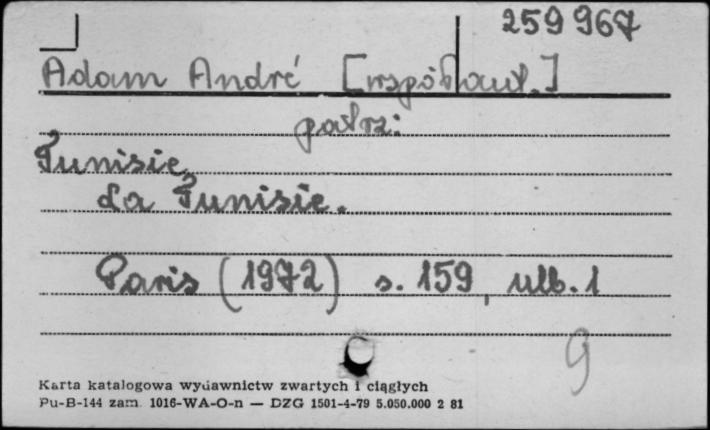 259967
Adam André [współaut.]
patrz:
Tunisie
La Tunisie.
Paris (1972) s. 159, ulb. 1
9
Karta katalogowa wydawnictw zwartych i ciągłych
Pu-B-144 zam. 1016-WA-O-n — DZG 1501-4-79 5.050.000 2 81